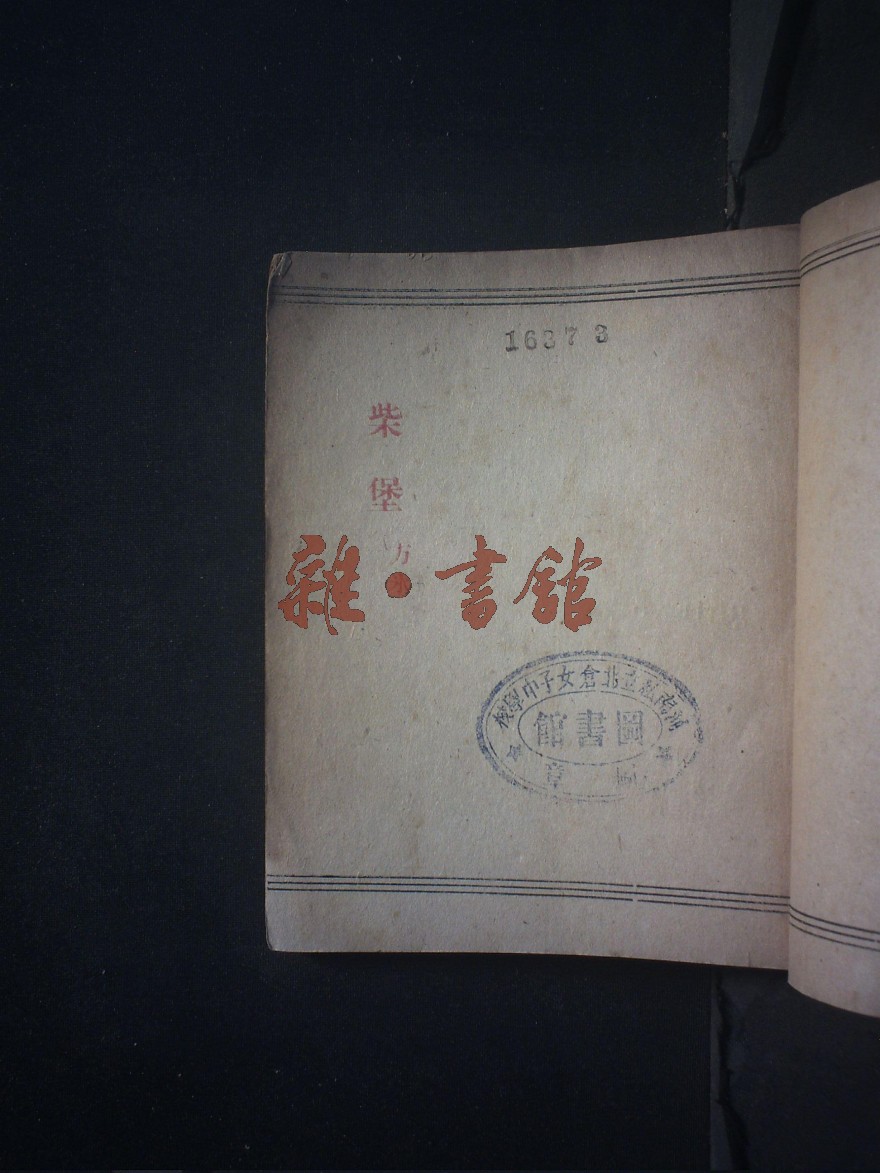 16373
柴堡
方
雜·書館
私立北倉女子中學校
圖書館
章